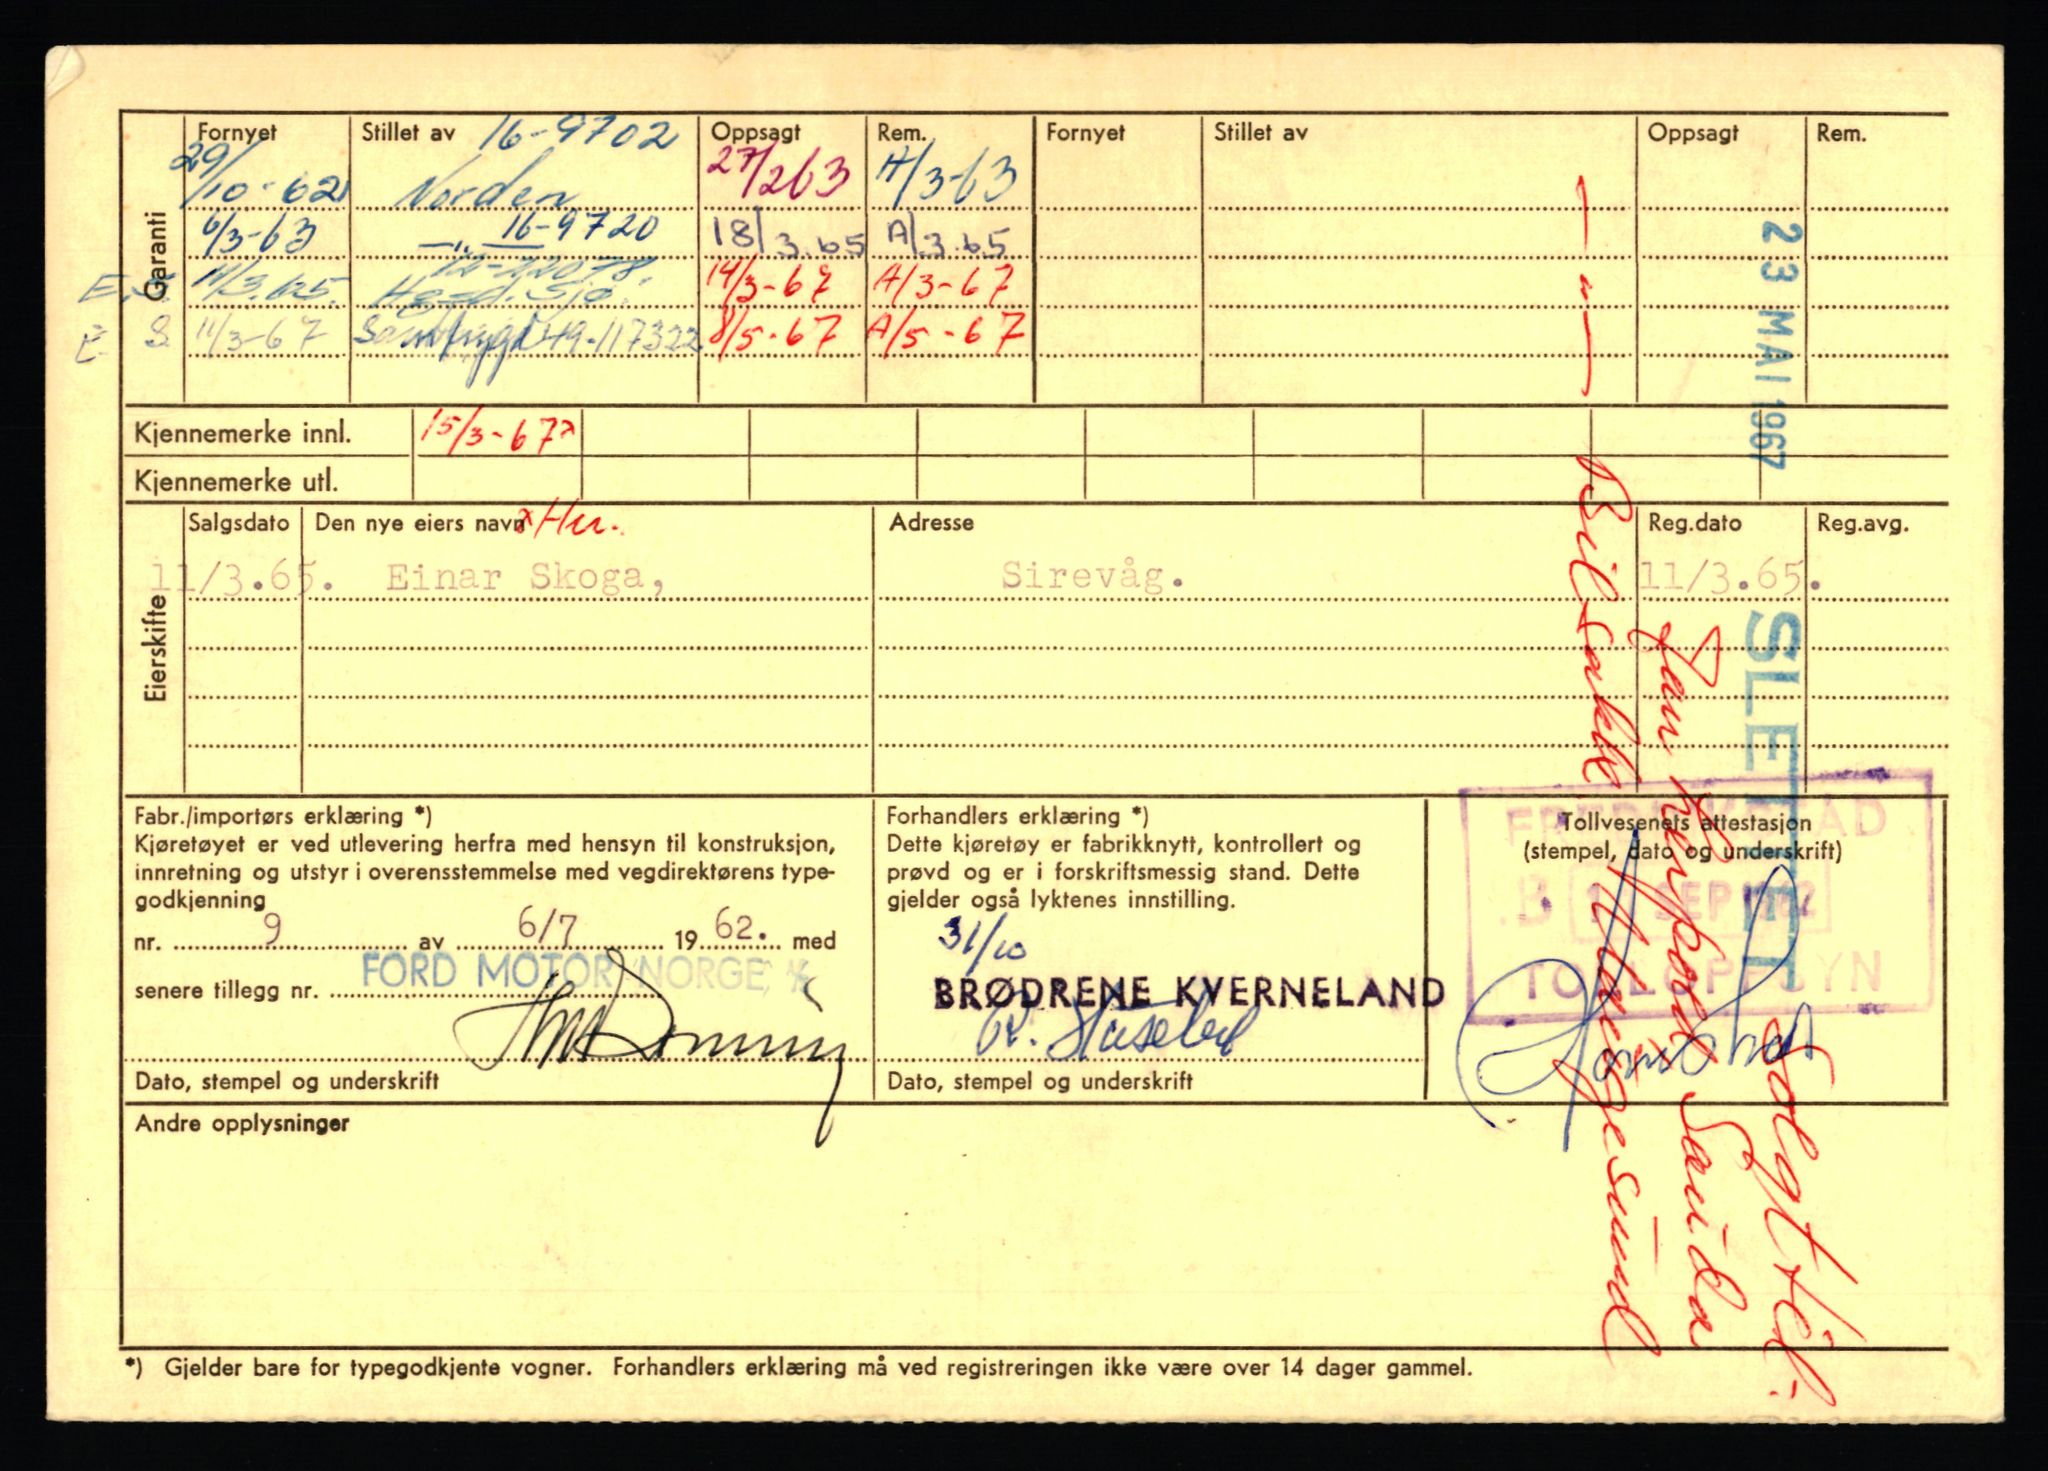 Garanti
Fornyet Stillet av 16-9702 Oppsagt Rem. Fornyet Stillet av Oppsagt Rem.
29/10-62 Norden 27/2 63 A/3-63
6/3-63 —"— 16-9720 18/3.65 A/3.65
E.S. 11/3.65. 14/3-67 A/3-67
E. S. 11/3-67 Samtrygd 49.117322 8/5-67 A/5-67
Kjennemerke innl. 15/3-67 x
Kjennemerke utl.
Eierskifte
Salgsdato Den nye eiers navn x Hu. Adresse Reg.dato Reg.avg.
11/3.65. Einar Skoga, Sirevåg. 11/3.65.
Fabr./importørs erklæring *)
Kjøretøyet er ved utlevering herfra med hensyn til konstruksjon,
innretning og utstyr i overensstemmelse med vegdirektørens type-
godkjenning
nr. 9 av 6/7 1962. med
senere tillegg nr. FORD MOTOR NORGE A/S
Dato, stempel og underskrift
Forhandlers erklæring *)
Dette kjøretøy er fabrikknytt, kontrollert og
prøvd og er i forskriftsmessig stand. Dette
gjelder også lyktenes innstilling.
31/10
BRØDRENE KVERNELAND
Dato, stempel og underskrift
Tollvesenets attestasjon
(stempel, dato og underskrift)
FREDRIKSTAD
SEP 1962
TOLLOPPSYN
Andre opplysninger
*) Gjelder bare for typegodkjente vogner. Forhandlers erklæring må ved registreringen ikke være over 14 dager gammel.
23 MAI 1967
SLETTET
Solgt til:
Sauda
— " — Bilsakk. Haugesund